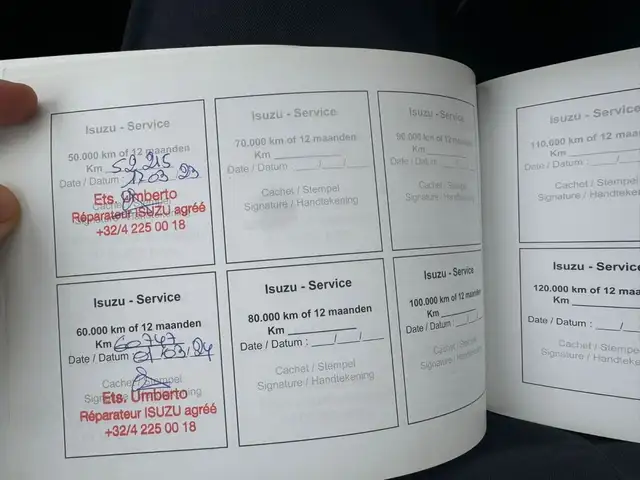 Isuzu - Service
50.000 km of 12 maanden
Km 59 215
Date / Datum : 17 03 23
Ets. Umberto
Cachet / Stempel
Réparateur ISUZU agréé
Signature / Handtekening
+32/4 225 00 18
Isuzu - Service
60.000 km of 12 maanden
Km 60747
Date / Datum 01/03/24
Cachet / Stempel
Signature / Handtekening
Ets. Umberto
Réparateur ISUZU agréé
+32/4 225 00 18
Isuzu - Service
70.000 km of 12 maanden
Km
Date / Datum : __/__/__
Cachet / Stempel
Signature / Handtekening
Isuzu - Service
80.000 km of 12 maanden
Km
Date / Datum : __/__/__
Cachet / Stempel
Signature / Handtekening
Isuzu - Service
90.000 km of 12 maanden
Km
Date / Datum : __/__/__
Cachet / Stempel
Signature / Handtekening
Isuzu - Service
100.000 km of 12 maanden
Km
Date / Datum : __/__/__
Cachet / Stempel
Signature / Handtekening
Isuzu - Service
110.000 km of 12 maand
Km
Date / Datum :
Cachet / Stempe
Signature / Handteke
Isuzu - Service
120.000 km of 12 maan
Km
Date / Datum :
Cachet / Stempe
Signature / Handteke